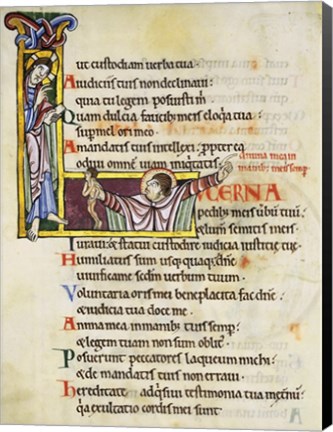 ut custodiam uerba tua:
A iudiciis tuis non declinaui:
quia tu legem posuisti m̄
Quam dulcia faucib; meis eloq̄a tua:
sup mel ori meo
A mandatis tuis intellexi: ppt̄erea
odiui omnē uiam iniq̄tatis:
anima mea in
manib; meis semp
LUCERNA
pedib; meis uerbū tuū:
& lumen semitis meis
Iuraui: & statui custodire iudicia iustitię tuę
Humiliatus sum usq; quaq; dn̄e:
uiuifica me scd̄m uerbum tuum
Voluntaria oris mei beneplacita fac dn̄e:
& iudicia tua doce me
Anima mea in manib; tuis semp:
& legem tuam non sum oblit'
Posuerunt peccatores laqueum michi:
& de mandatis tuis non erraui
Hereditate adq̄siui testimonia tua inet̄nū:
q̄a exultatio cordis mei sunt